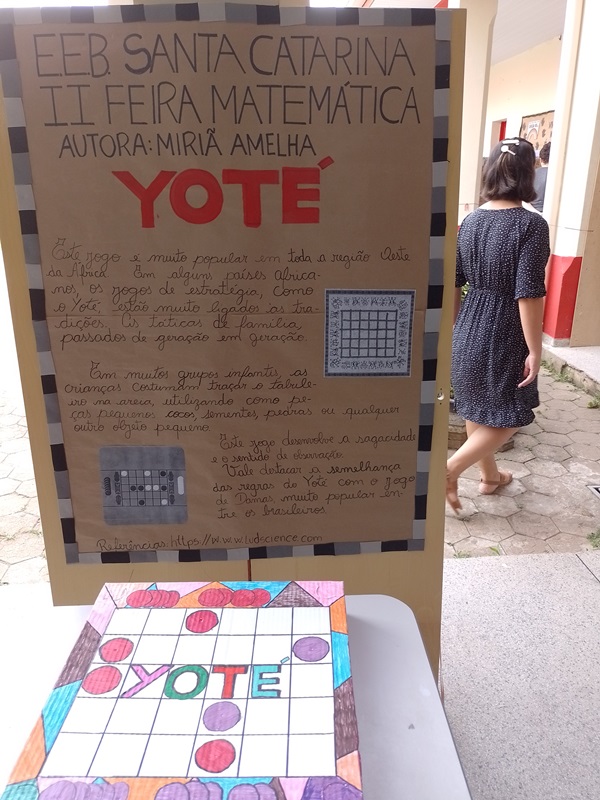 E.E.B. SANTA CATARINA
II FEIRA MATEMÁTICA
AUTORA: MIRIÃ AMELHA
YOTÉ
Este jogo e muito popular em toda a região Oeste
da África. Em alguns países africa-
nos, os jogos de estratégia, como
o Yoté, estão muito ligados as tra-
dições. As táticas de família,
passados de geração em geração.
Em muitos grupos infantis, as
crianças costumam traçar o tabule-
iro na areia, utilizando como pe-
ças pequenos cocos, sementes, pedras ou qualquer
outro objeto pequeno.
Este jogo desenvolve a sagacidade
e o sentido de observação.
Vale destacar a semelhança
das regras do Yoté com o jogo
de Damas, muito popular en-
tre os brasileiros.
Referências: https://www.ludscience.com
YOTÉ